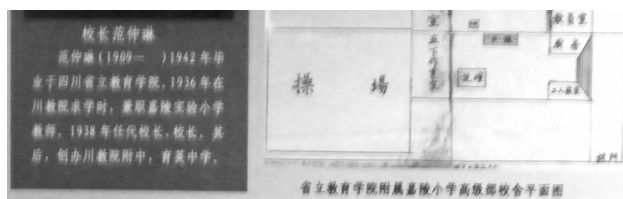 校长范仲琳
范仲琳(1909— )1942年毕
业于四川省立教育学院，1936年在
川教院求学时，兼职嘉陵实验小学
教师，1938年任代校长，校长，其
后，创办川教院附中，育英中学，
操場
教員室
廚房
工人寢室
校門
省立教育学院附属嘉陵小学高级部校舍平面图